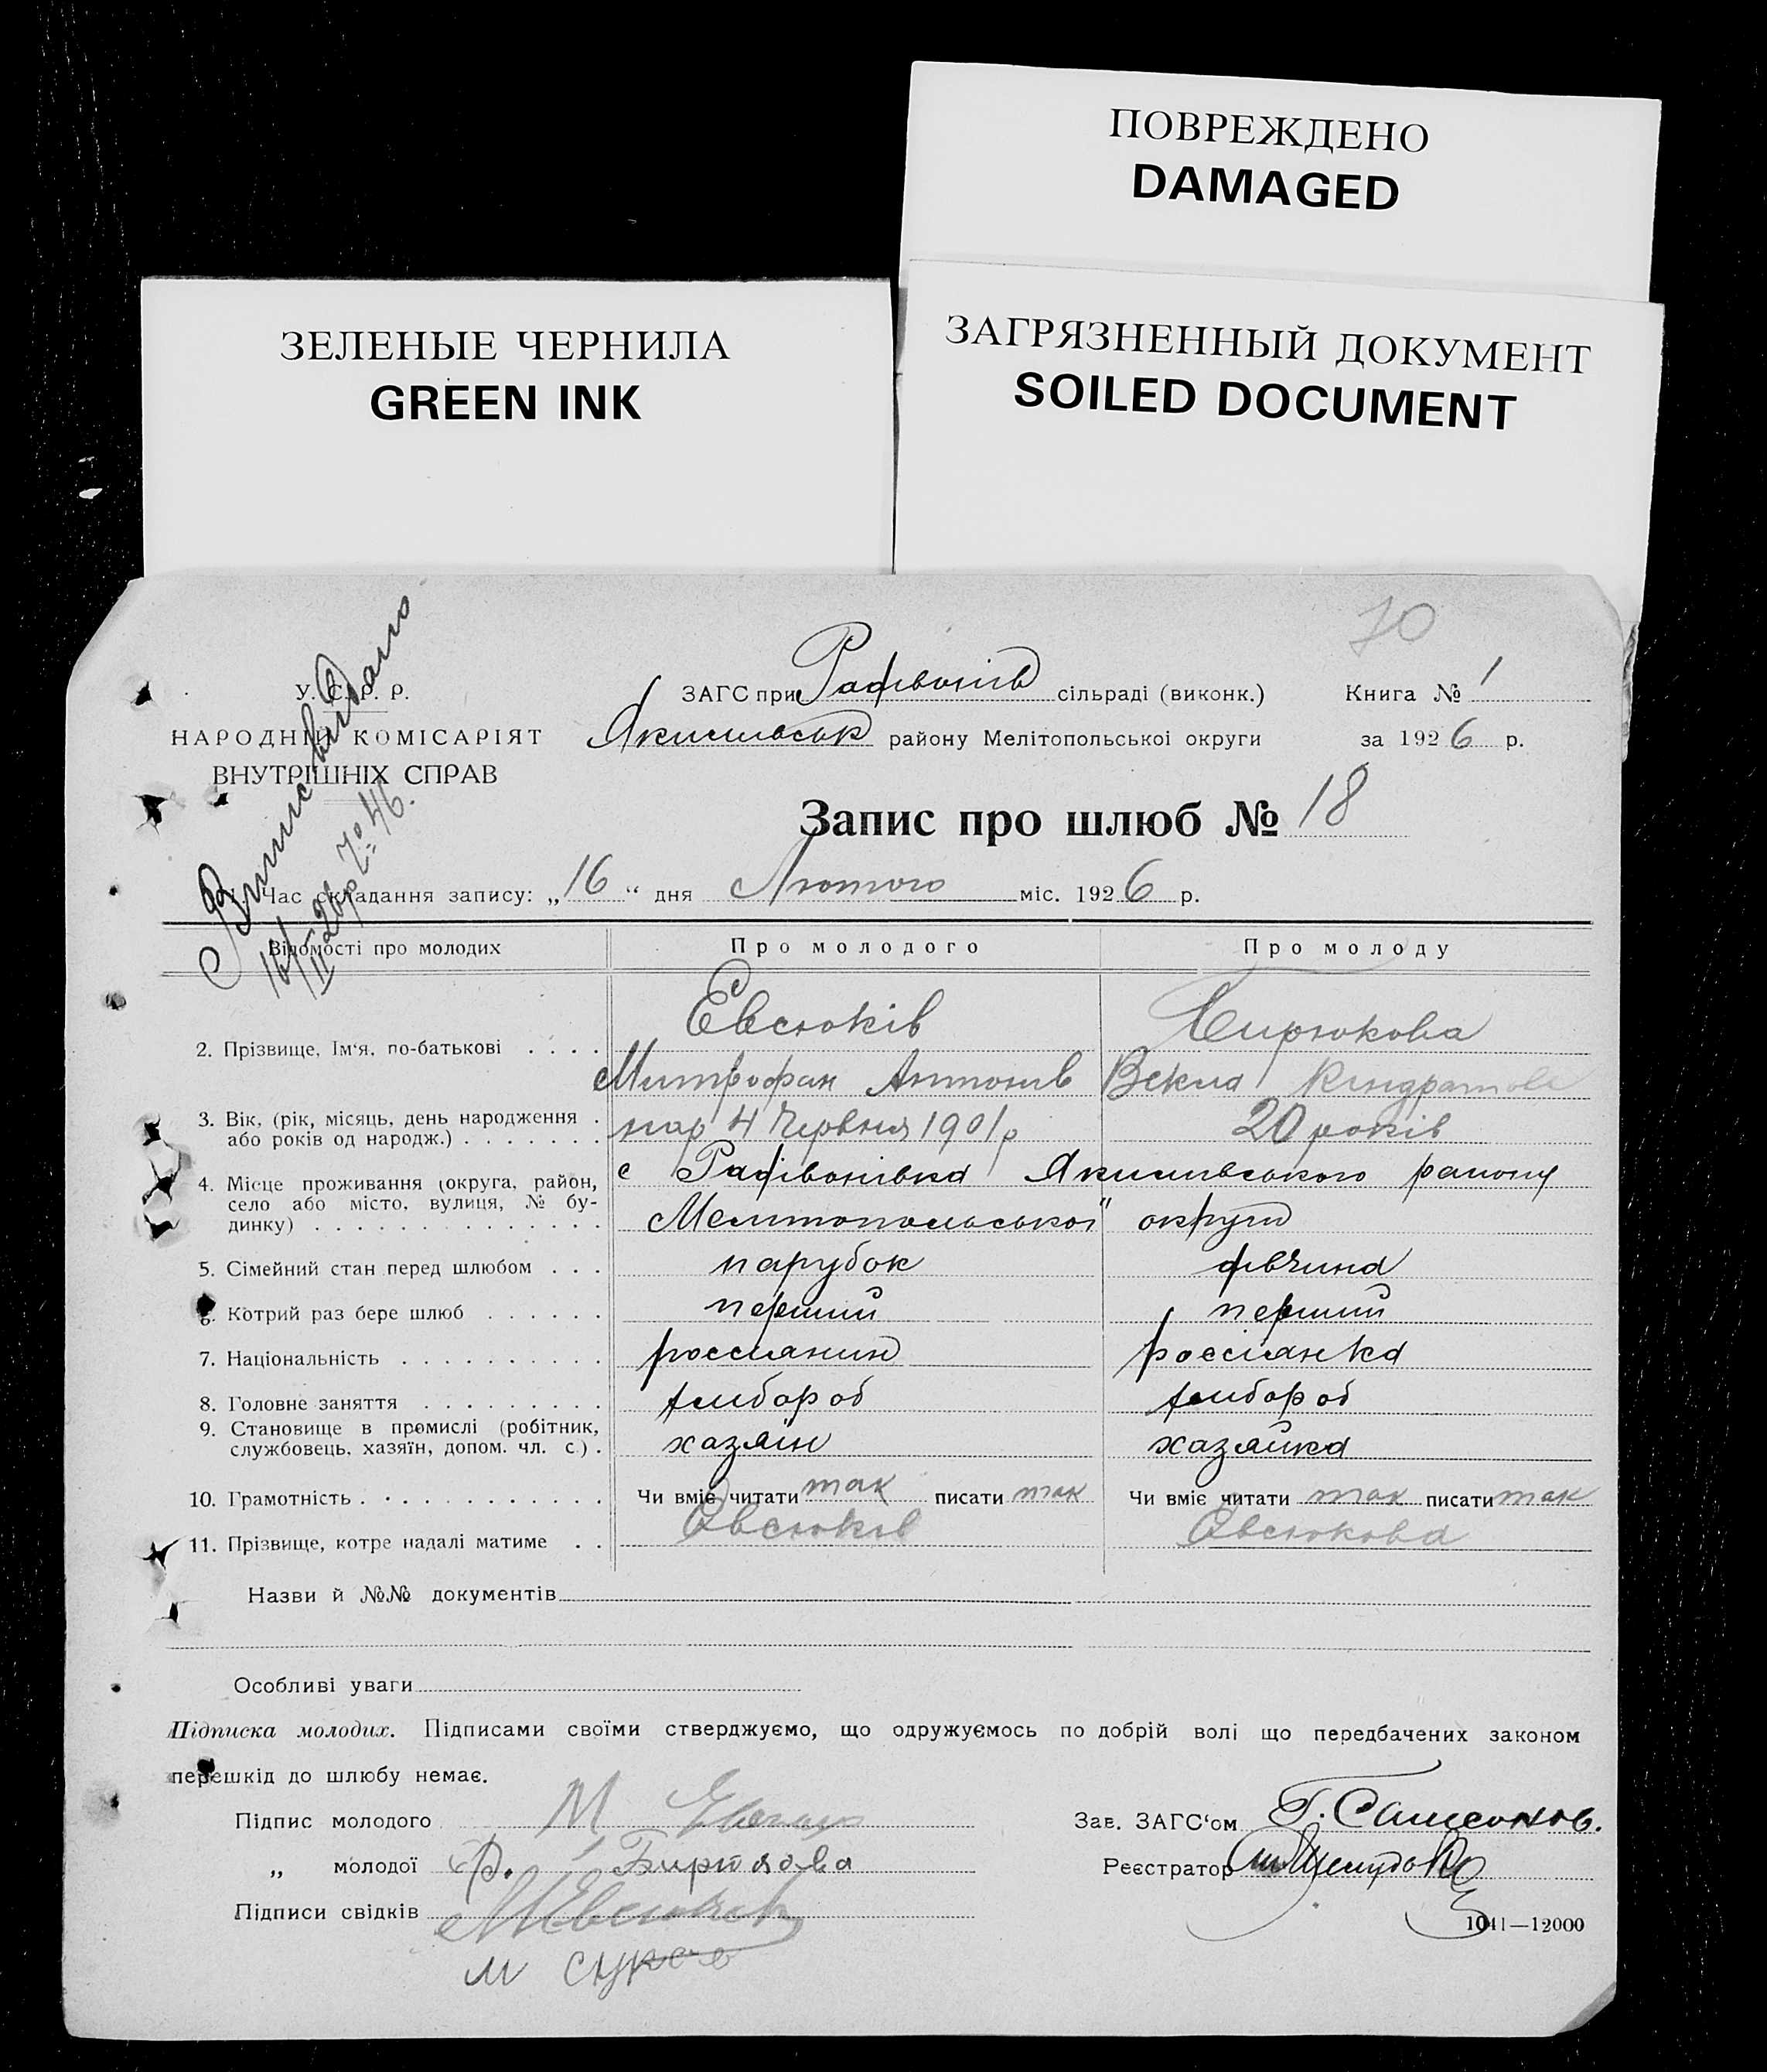 ПОВРЕЖДЕНО
DAMAGED
ЗЕЛЕНЫЕ ЧЕРНИЛА
GREEN INK
ЗАГРЯЗНЕННЫЙ ДОКУМЕНТ
SOILED DOCUMENT
70
У. С. Р. Р.
НАРОДНІЙ КОМІСАРІЯТ
ВНУТРІШНІХ СПРАВ
Випис видано
16/II 26 р № 46.
ЗАГС при Радівонів сільраді (виконк.) Книга № 1
Якимівськ району Мелітопольської округи за 1926 р.
Запис про шлюб № 18
Час складання запису: „16“ дня Лютого міс. 1926 р.
Відомості про молодих Про молодого Про молоду
Евсюків
2. Прізвище, Ім'я, по-батькові . . . .
Митрофан Антонів Векла Кіндратова
3. Вік, (рік, місяць, день народження . або років од народж.) . . . . . . . нар 4 Червня 1901 р 20 років
4. Місце проживання (округа, район, с Радівонівка Якимівського району
село або місто, вулиця, № бу-
динку) . . . . . . . . . . . . . . Мелітопольської округи
5. Сімейний стан перед шлюбом . . . парубок дівчина
6. Котрий раз бере шлюб . . . . . . перший перший
7. Національність . . . . . . . . . . россіянин россіянка
8. Головне заняття . . . . . . . . . хлибороб хлибороб
9. Становище в промислі (робітник,
службовець, хазяїн, допом. чл. с.) . хазяїн хазяйка
10. Грамотність . . . . . . . . . . . Чи вміє читати так писати так Чи вміє читати так писати так
11. Прізвище, котре надалі матиме . . Євсюків Євсюкова
Назви й №№ документів
Особливі уваги
Підписка молодих. Підписами своїми стверджуємо, що одружуємось по добрій волі що передбачених законом
перешкід до шлюбу немає.
Підпис молодого М Зав. ЗАГС'ом Г. Самсонов.
„ молодої Ф. Бирюкова Реєстратор
Підписи свідків М Евсюков
1041—12000
М